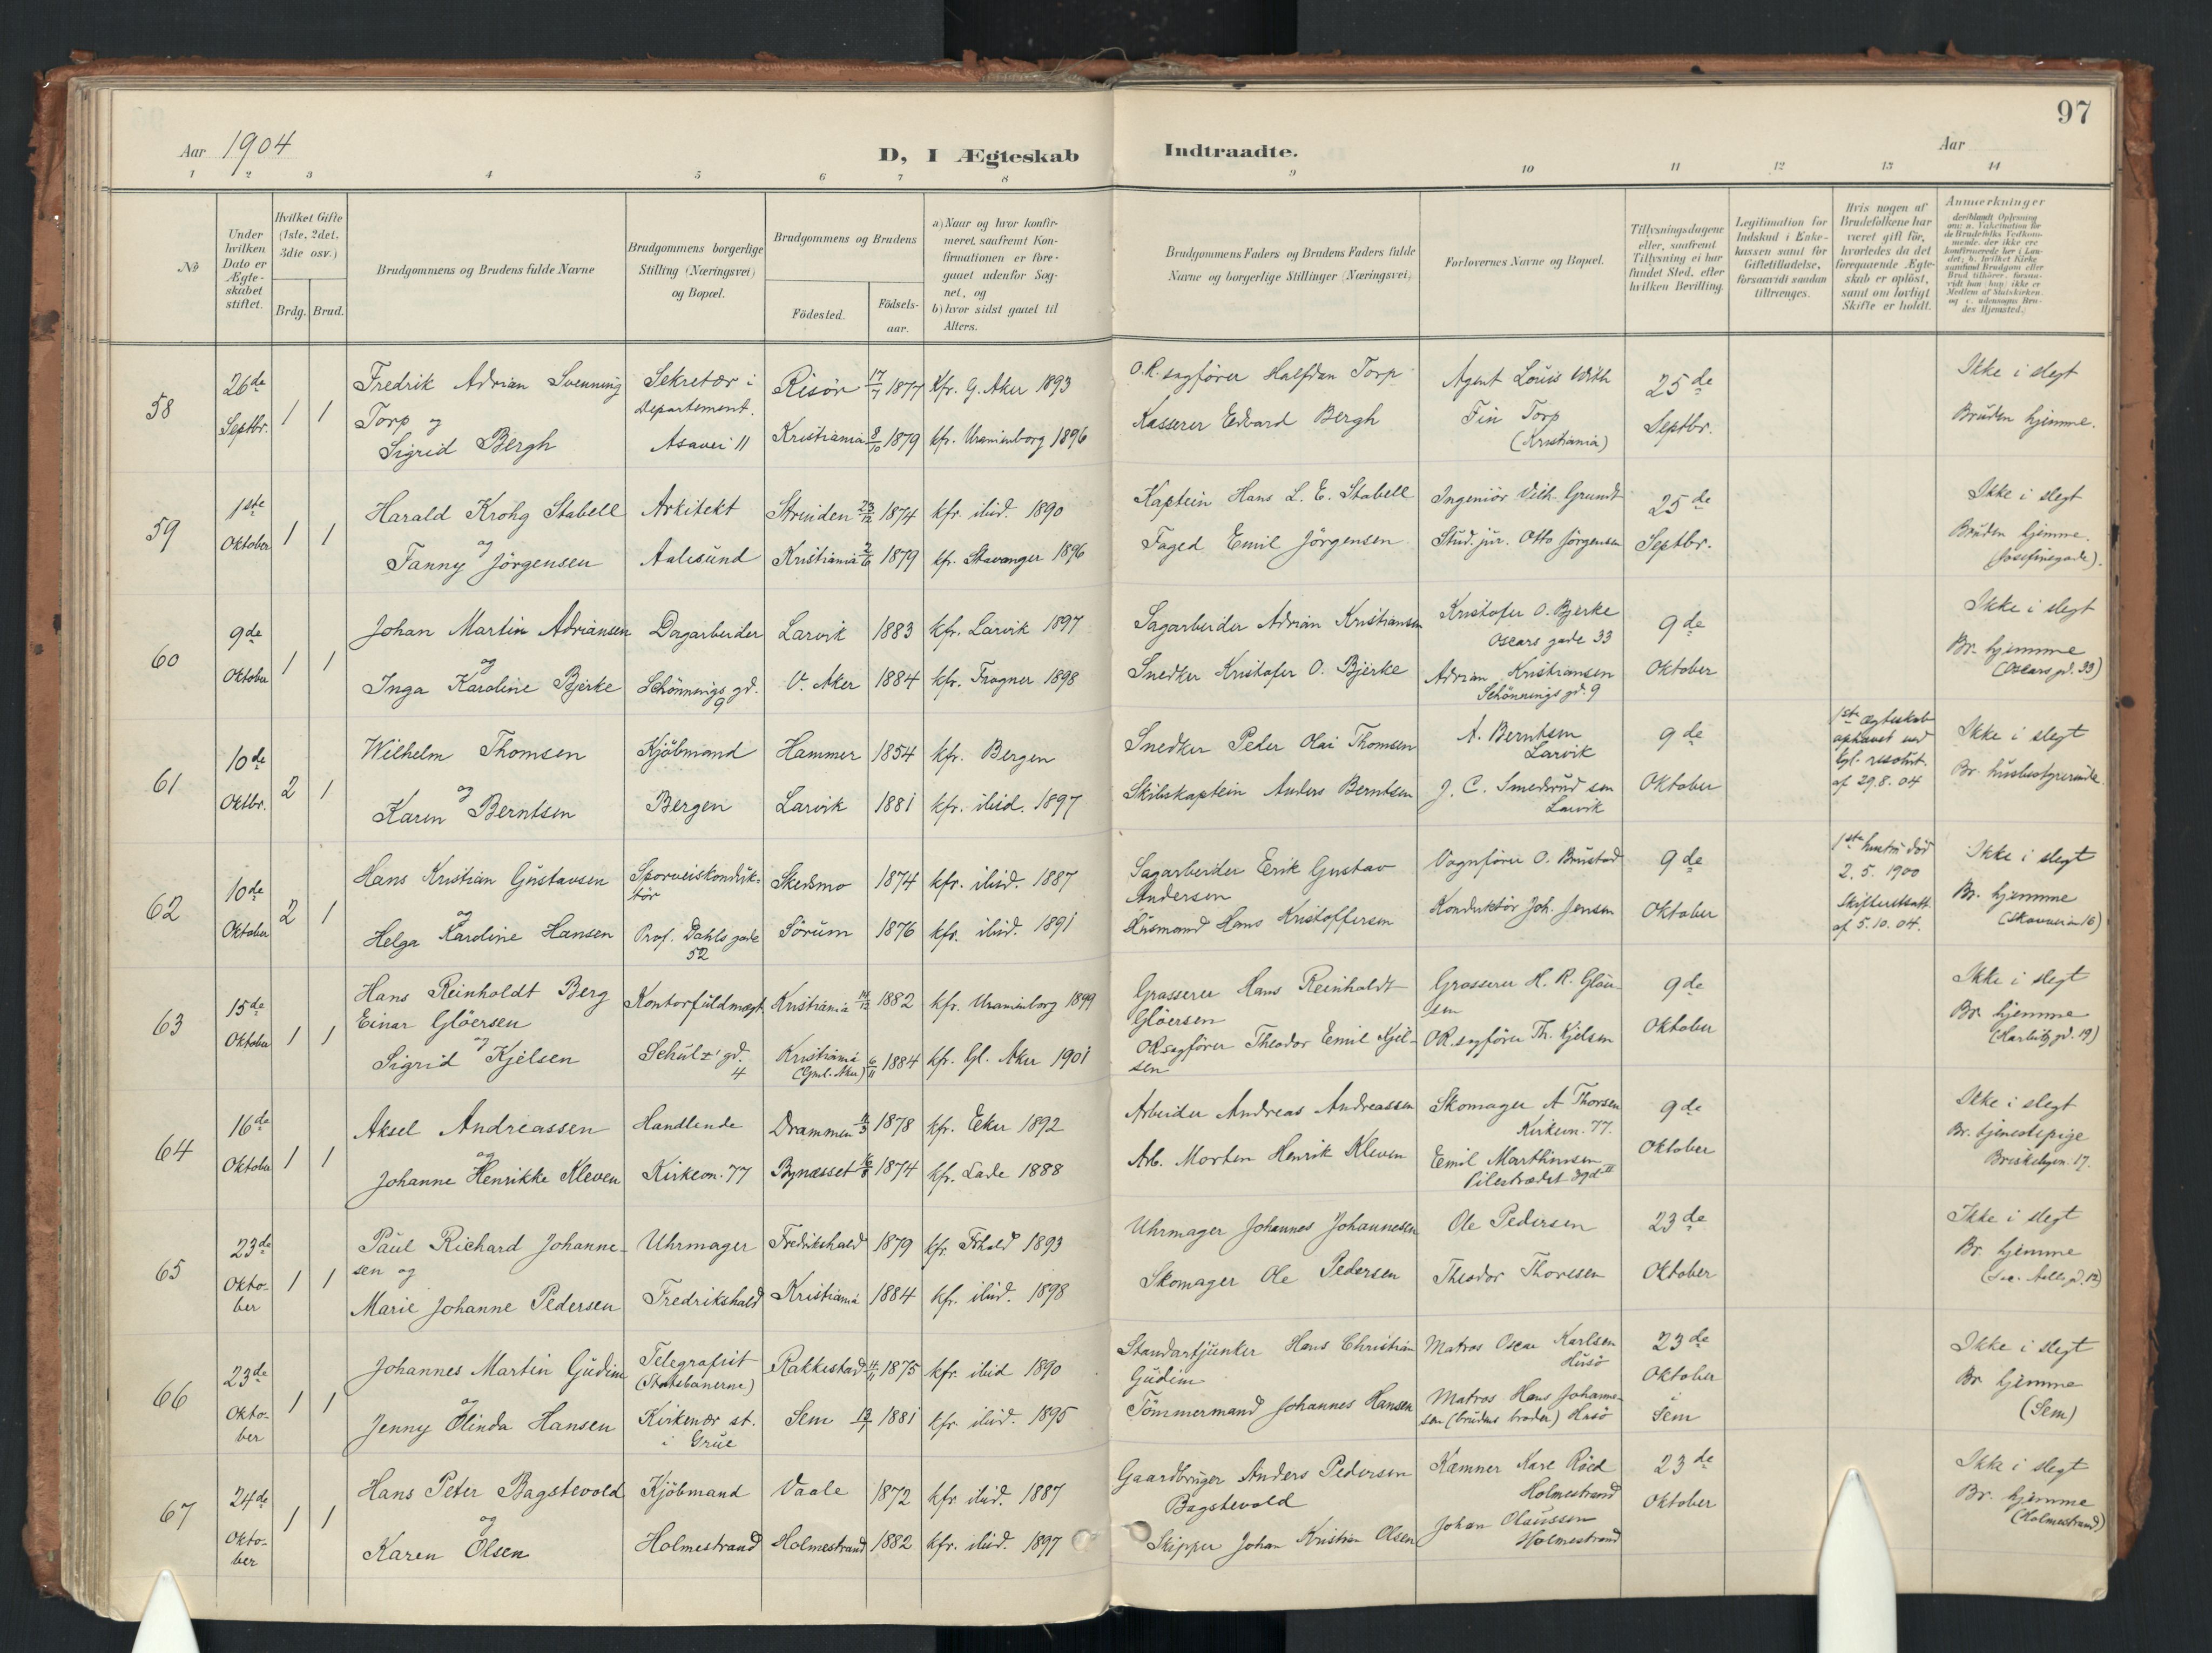 97
Aar 1904
D, I Ægteskab Indtraadte.
Aar
1 2 3 4 5 6 7 8 9 10 11 12 13 14
No
Under hvilken Dato er Ægteskabet stiftet.
Hvilket Gifte (1ste, 2det, 3die osv.)
Brdg. Brud.
Brudgommens og Brudens fulde Navne
Brudgommens borgerlige Stilling (Næringsvei) og Bopæl.
Brudgommens og Brudens
Födested.
Födsels-aar.
a) Naar og hvor konfir-
meret, saafremt Kon-
firmationen er fore-
gaaet udenfor Sog-
net, og
b) hvor sidst gaaet til
Alters.
Brudgommens Faders og Brudens Faders fulde
Navne og borgerlige Stillinger (Næringsvei)
Forlovernes Navne og Bopæl.
Tillysningsdagene
eller, saafremt
Tillysning ei har
fundet Sted, efter
hvilken Bevilling.
Legitimation for
Indskud i Enke-
kassen samt for
Giftetilladelse,
forsaavidt saadan
tiltrænges.
Hvis nogen af
Brudefolkene har
været gift för,
hvorledes da det
foregaaende Ægte-
skab er oplöst,
samt om lovligt
Skifte er holdt.
Anmerkninger
58
26de Septbr.
1 1
Fredrik Adrian Svenning
Torp og
Sigrid Bergh
Sekretær i
Departement.
Asavei 11
Risör 17/7 1877 Kfr. G. Aker 1893
Kristiania 8/10 1879 kfr. Uranienborg 1896
O.R. sagförer Halfdan Torp
Kasserer Edvard Bergh
Agent Louis With
Fin Torp
(Kristiania)
25de
Septbr.
Ikke i slegt
Bruden hjemme.
59
1ste Oktober
1 1
Harald Krohg Stabell
og
Fanny Jörgensen
Arkitekt
Aalesund
Strinden 23/12 1874 kfr. ibid. 1890
Kristiania 2/6 1879 kfr. Stavanger 1896
Kaptein Hans L. E. Stabell
Foged Emil Jörgensen
Ingeniör Vilh. Grundt
Stud. jur. Otto Jörgensen
25de
Septbr.
Ikke i slegt
Bruden hjemme.
(Josefinegade).
60
9de Oktober
1 1
Johan Martin Adriansen
og
Inga Karoline Bjerke
Dagarbeider
Schönnings gd.
9
Larvik 1883 kfr. Larvik 1897
V. Aker 1884 kfr. Frogner 1898
Sagarbeider Adrian Kristiansen
Snedker Kristofer O. Bjerke
Kristofer O. Bjerke
Oscars gade 33
Adrian Kristiansen
Schönnings gd. 9
9de
Oktober
Ikke i slegt
Br. hjemme
(Oscars gd. 33)
61
10de Oktbr.
2 1
Wilhelm Thomsen
og
Karen Berntsen
Kjöbmand
Bergen
Hammer 1854 kfr. Bergen
Larvik 1881 kfr. ibid. 1897
Snedker Peder Olai Thomsen
Skibskaptein Anders Berntsen
A. Berntsen
Larvik
J. C. Smedsrud sen
Larvik
9de
Oktober
1ste ægteskab
ophævet ved
kgl. resolut.
af 29.8.04
Ikke i slegt
Br. husbestyrerinde
62
10de Oktober
2 1
Hans Kristian Gustavsen
og
Helga Karoline Hansen
Sporveiskonduk-
tör
Prof. Dahls gade
52
Skedsmo 1874 kfr. ibid. 1887
Sörum 1876 kfr. ibid. 1891
Sagarbeider Erik Gustav
Andersen
Husmand Hans Kristoffersen
Vognförer O. Brustad
Konduktör Joh. Jensen
9de
Oktober
1ste hustru död
2.5.1900
Skifteretsatt.
af 5.10.04.
Ikke i slegt
Br. hjemme
63
15de Oktober
1 1
Hans Reinholdt Berg
Einar Glöersen
og
Sigrid Kjelsen
Kontorfuldmægt.
Schultz' gd.
4
Kristiania 1882 kfr. Uranienborg 1899
Kristiania
(Gml. Aker) 6/11 1884 kfr. Gl. Aker 1901
Grosserer Hans Reinholdt
Glöersen
ORsagförer Theodor Emil Kjel-
sen
Grosserer H. R. Glöer-
sen
OR.sagförer Th. Kjelsen
9de
Oktober
Ikke i slegt
Br. hjemme
64
16de Oktober
1 1
Aksel Andreassen
og
Johanne Henrikke Kleven
Handlende
Kirkevn. 77
Drammen 1878 kfr. Eker 1892
Bynæsset 1874 kfr. Lade 1888
Arbeider Andreas Andreassen
Arb. Morten Henrik Kleven
Skomager A Thorsen
Kirkevn. 77.
Emil Marthinsen
Pilestrædet
9de
Oktober
Ikke i slegt
Br. tjenestepige
Briskebyvn. 17.
65
23de Okto-
ber
1 1
Paul Richard Johanne-
sen og
Marie Johanne Pedersen
Uhrmager
Fredrikshald
Fredrikshald 1879 kfr. Frhald 1893
Kristiania 1884 kfr. ibid. 1898
Uhrmager Johannes Johannesen
Skomager Ole Pedersen
Ole Pedersen
Theodor Thoresen
23de
Oktober
Ikke i slegt
Br. hjemme
66
23de Okto-
ber
1 1
Johannes Martin Gudim
og
Jenny Olinda Hansen
Telegrafist
(Statsbanerne)
Kirkenær st.
i Grue
Rakkestad 1875 kfr. ibid 1890
Sem 1881 kfr. ibid. 1895
Standartjunker Hans Christian
Gudim
Tömmermand Johannes Hansen
Matros Oscar Karlsen
Husö
Matros Hans Johanne-
sen (brudens broder) Husö
23de
Oktober
i
Sem
Ikke i slegt
Br. hjemme
(Sem)
67
24de Okto-
ber
1 1
Hans Peter Bagstevold
og
Karen Olsen
Kjöbmand
Holmestrand
Vaale 1872 kfr ibid. 1887
Holmestrand 1882 kfr. ibid. 1897
Gaardbruger Anders Pedersen
Bagstevold
Skipper Johan Kristian Olsen
Kæmner Kare Röed
Holmestrand
Johan Olaussen
Holmestrand
23de
Oktober
Ikke i slegt
Br. hjemme
(Holmestrand)